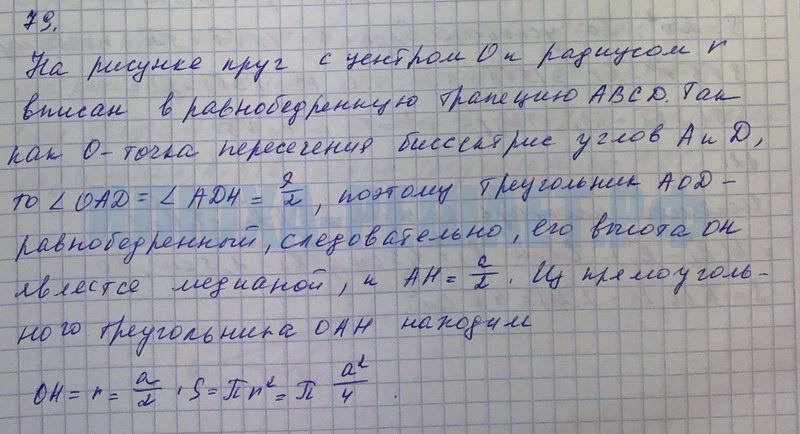 79.
На рисунке круг с центром О и радиусом r
вписан в равнобедренную трапецию ABCD. Так
как О-точка пересечения биссектрис углов А и D,
то ∠OAD = ∠ADH = 2/2, поэтому треугольник AOD-
равнобедренный, следовательно, его высота OH
является медианой, и AH = a/2. Из прямоуголь-
ного треугольника OAH находим
OH = r = a/2, S = Πr² = Π a²/4.